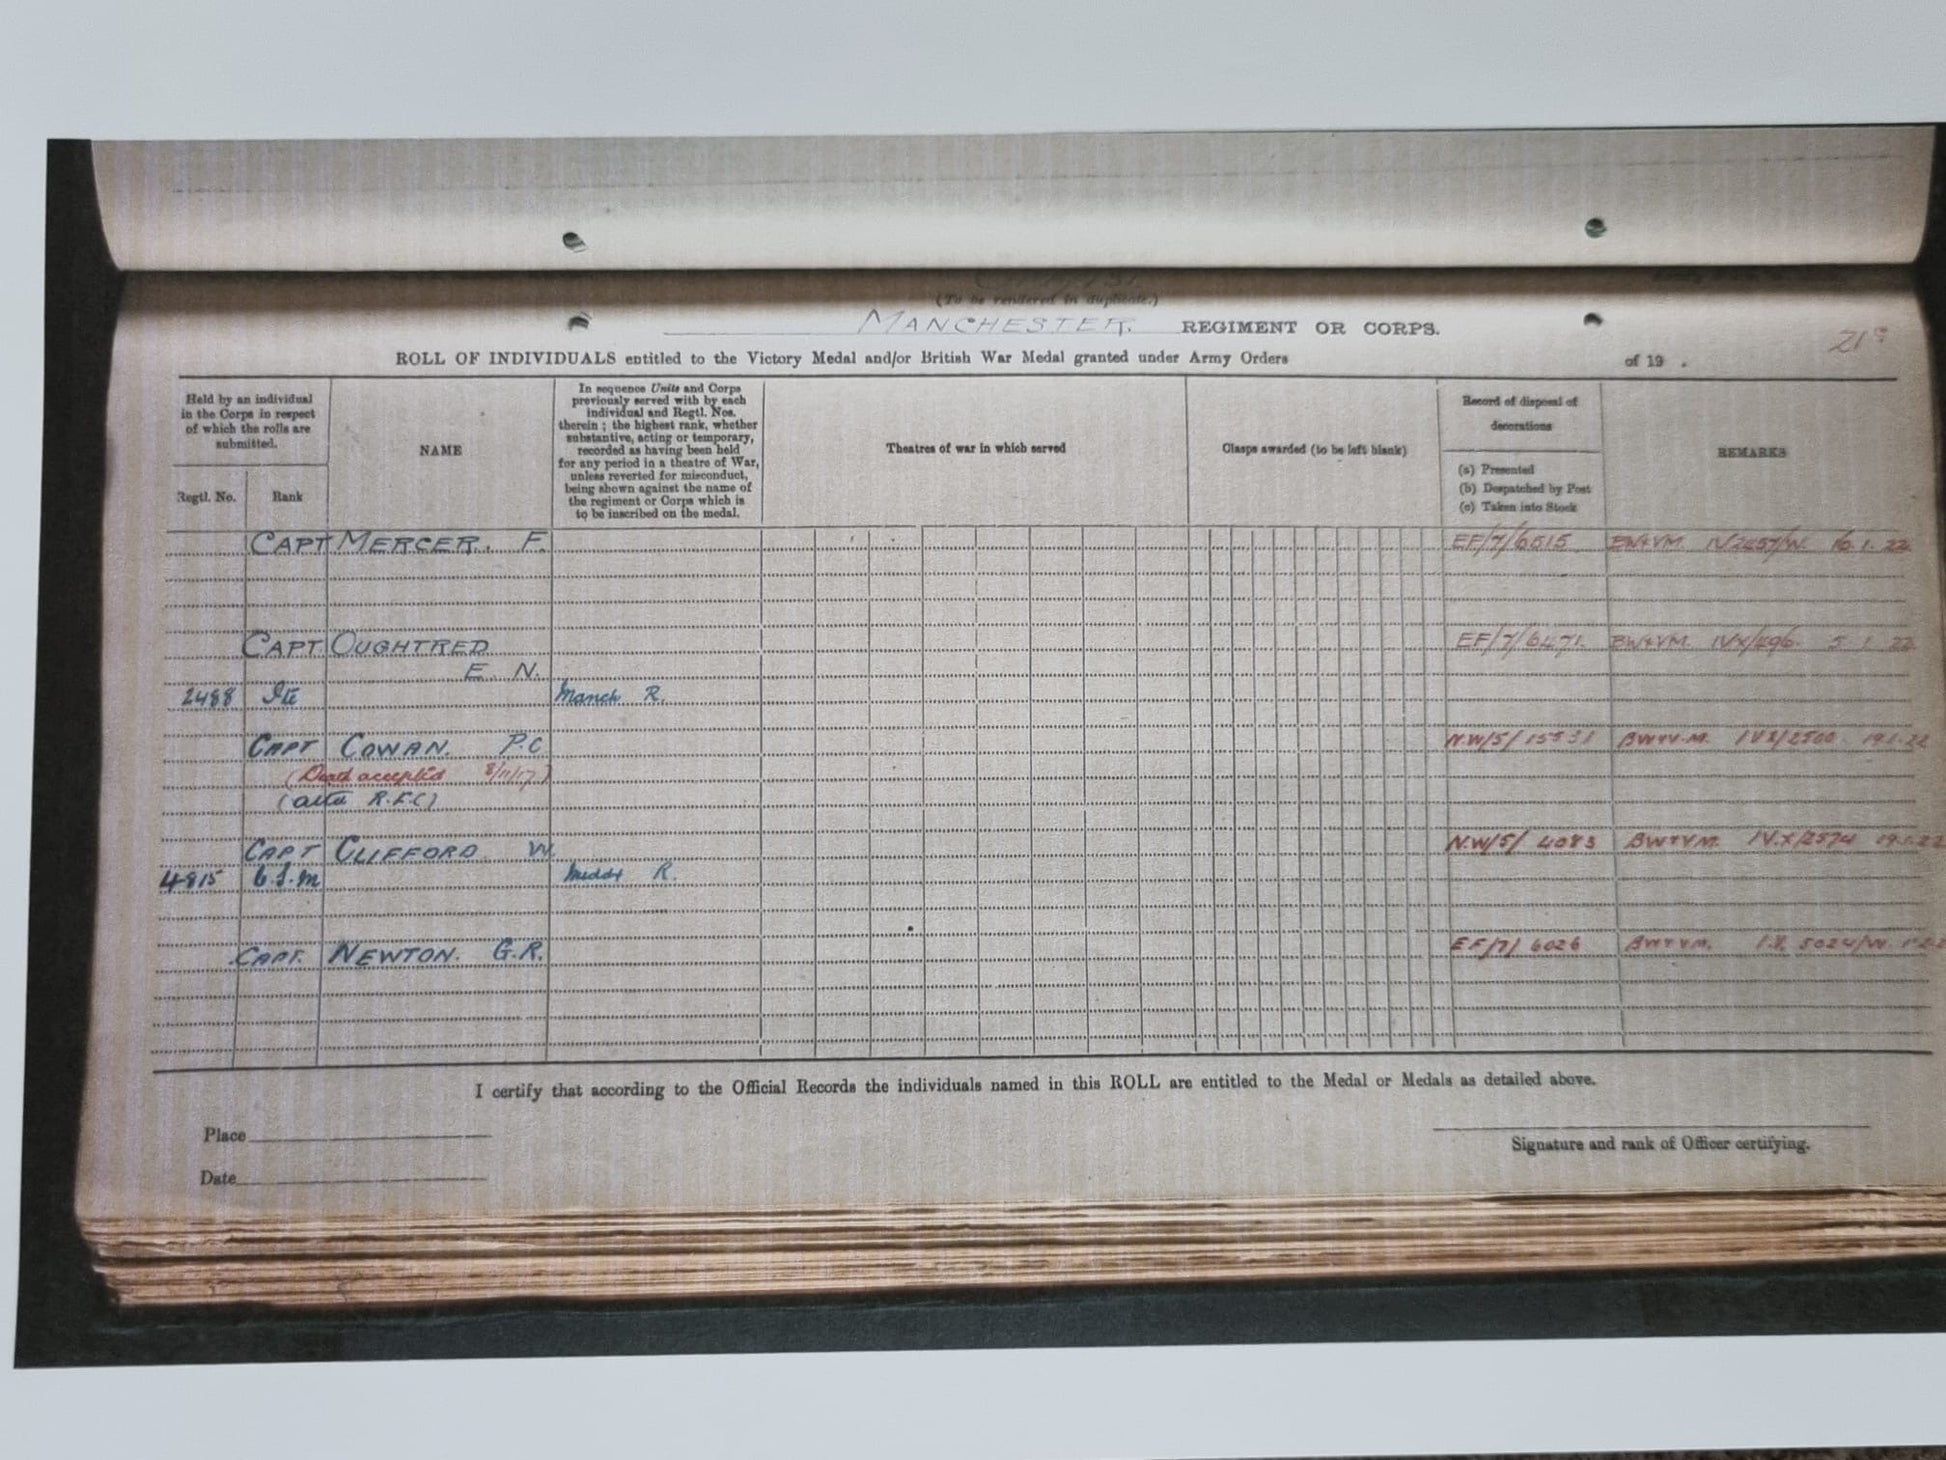 (To be rendered in duplicate.)
MANCHESTER. REGIMENT OR CORPS.
ROLL OF INDIVIDUALS entitled to the Victory Medal and/or British War Medal granted under Army Orders of 19 .
Held by an individual
in the Corps in respect
of which the rolls are
submitted.
Regtl. No.
Rank
NAME
In sequence Units and Corps
previously served with by each
individual and Regtl. Nos.
therein ; the highest rank, whether
substantive, acting or temporary,
recorded as having been held
for any period in a theatre of War,
unless reverted for misconduct,
being shown against the name of
the regiment or Corps which is
to be inscribed on the medal.
Theatres of war in which served
Clasps awarded (to be left blank)
Record of disposal of
decorations
(a) Presented
(b) Despatched by Post
(c) Taken into Stock
REMARKS
CAPT MERCER. F. EF/7/6515 BW&VM. 16.1.22
CAPT OUGHTRED EF/7/6471. BW&VM. IVX/496. 5.1.22
E. N.
2488 Pte Manch R.
CAPT COWAN. P.C. N.W/5/ BW&V.M. 19.1.22
(Death accepted 8/11/17)
R.F.C)
CAPT CLIFFORD W. N.W/5/ 4083 BW&VM. IV.X/2574 19.1.22
4815 C.S.M Middx R.
CAPT. NEWTON. G.R. EF/7/ 6026 BW&VM. 5024/W.
I certify that according to the Official Records the individuals named in this ROLL are entitled to the Medal or Medals as detailed above.
Place
Signature and rank of Officer certifying.
Date